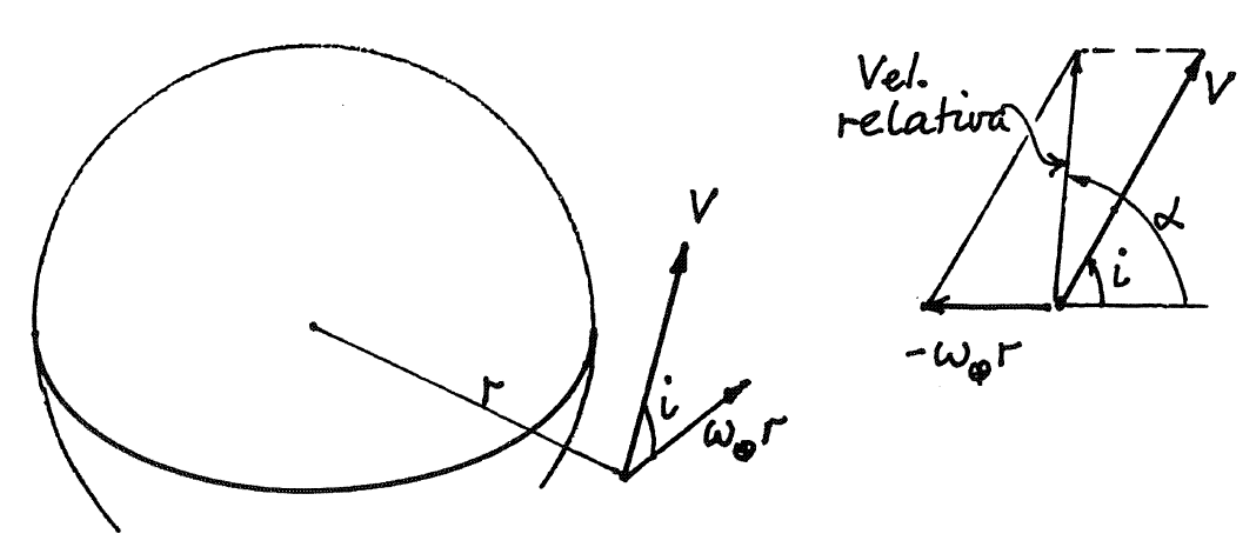 V
r
i
ω⊕r
Vel.
relativa
V
α
i
-ω⊕r